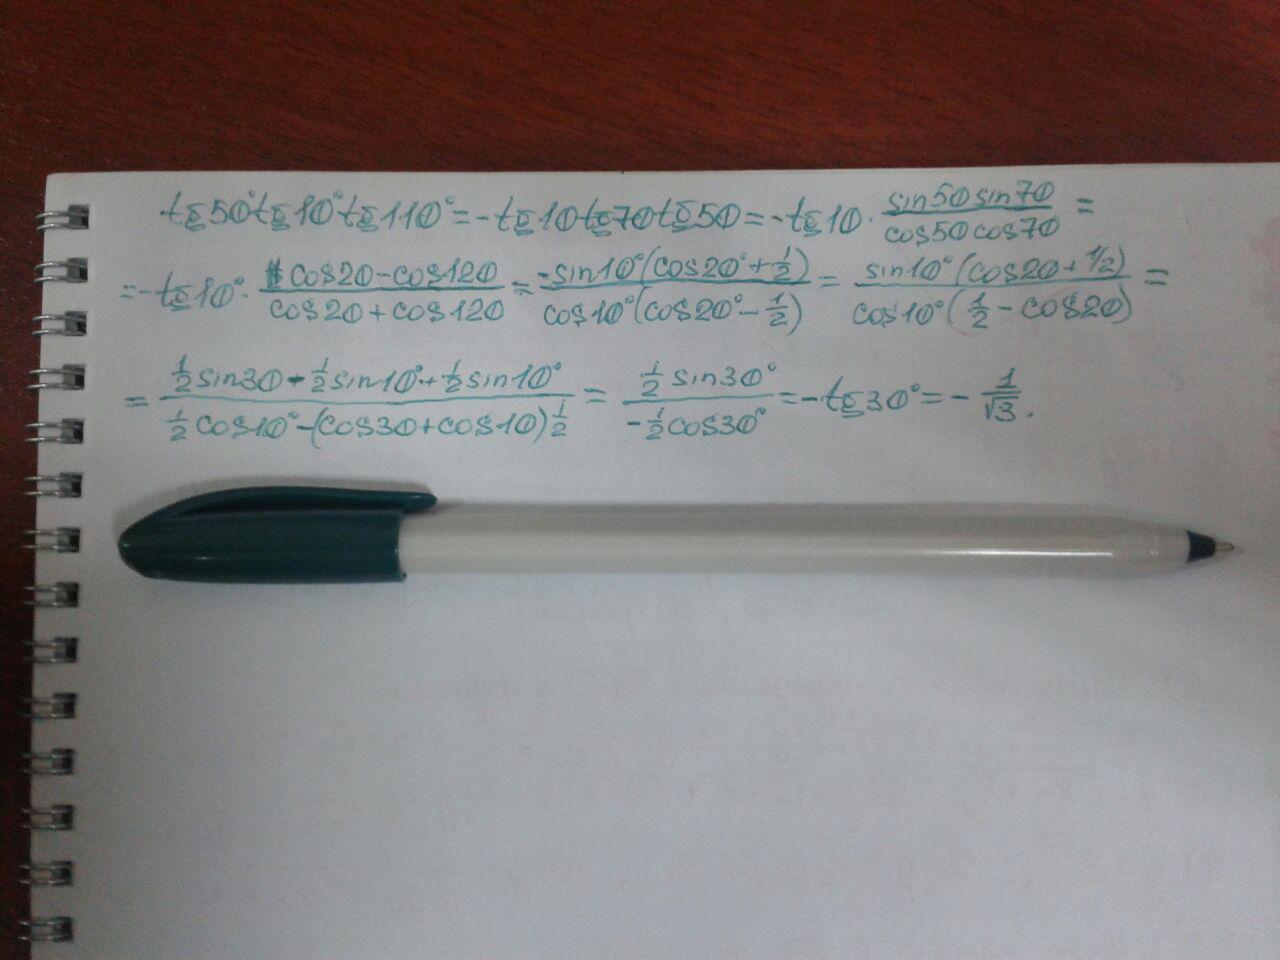 tg50°tg10°tg110°=-tg10tg70tg50=-tg10·(sin50sin70)/(cos50cos70)=
=-tg10°·(cos20-cos120)/(cos20+cos120)=(-sin10°(cos20°+1/2))/(cos10°(cos20°-1/2))=(sin10°(cos20+1/2))/(cos10°(1/2-cos20))=
=(1/2sin30-1/2sin10°+1/2sin10°)/(1/2cos10°-(cos30+cos10)1/2)=(1/2sin30°)/(-1/2cos30°)=-tg30°=-1/√3.